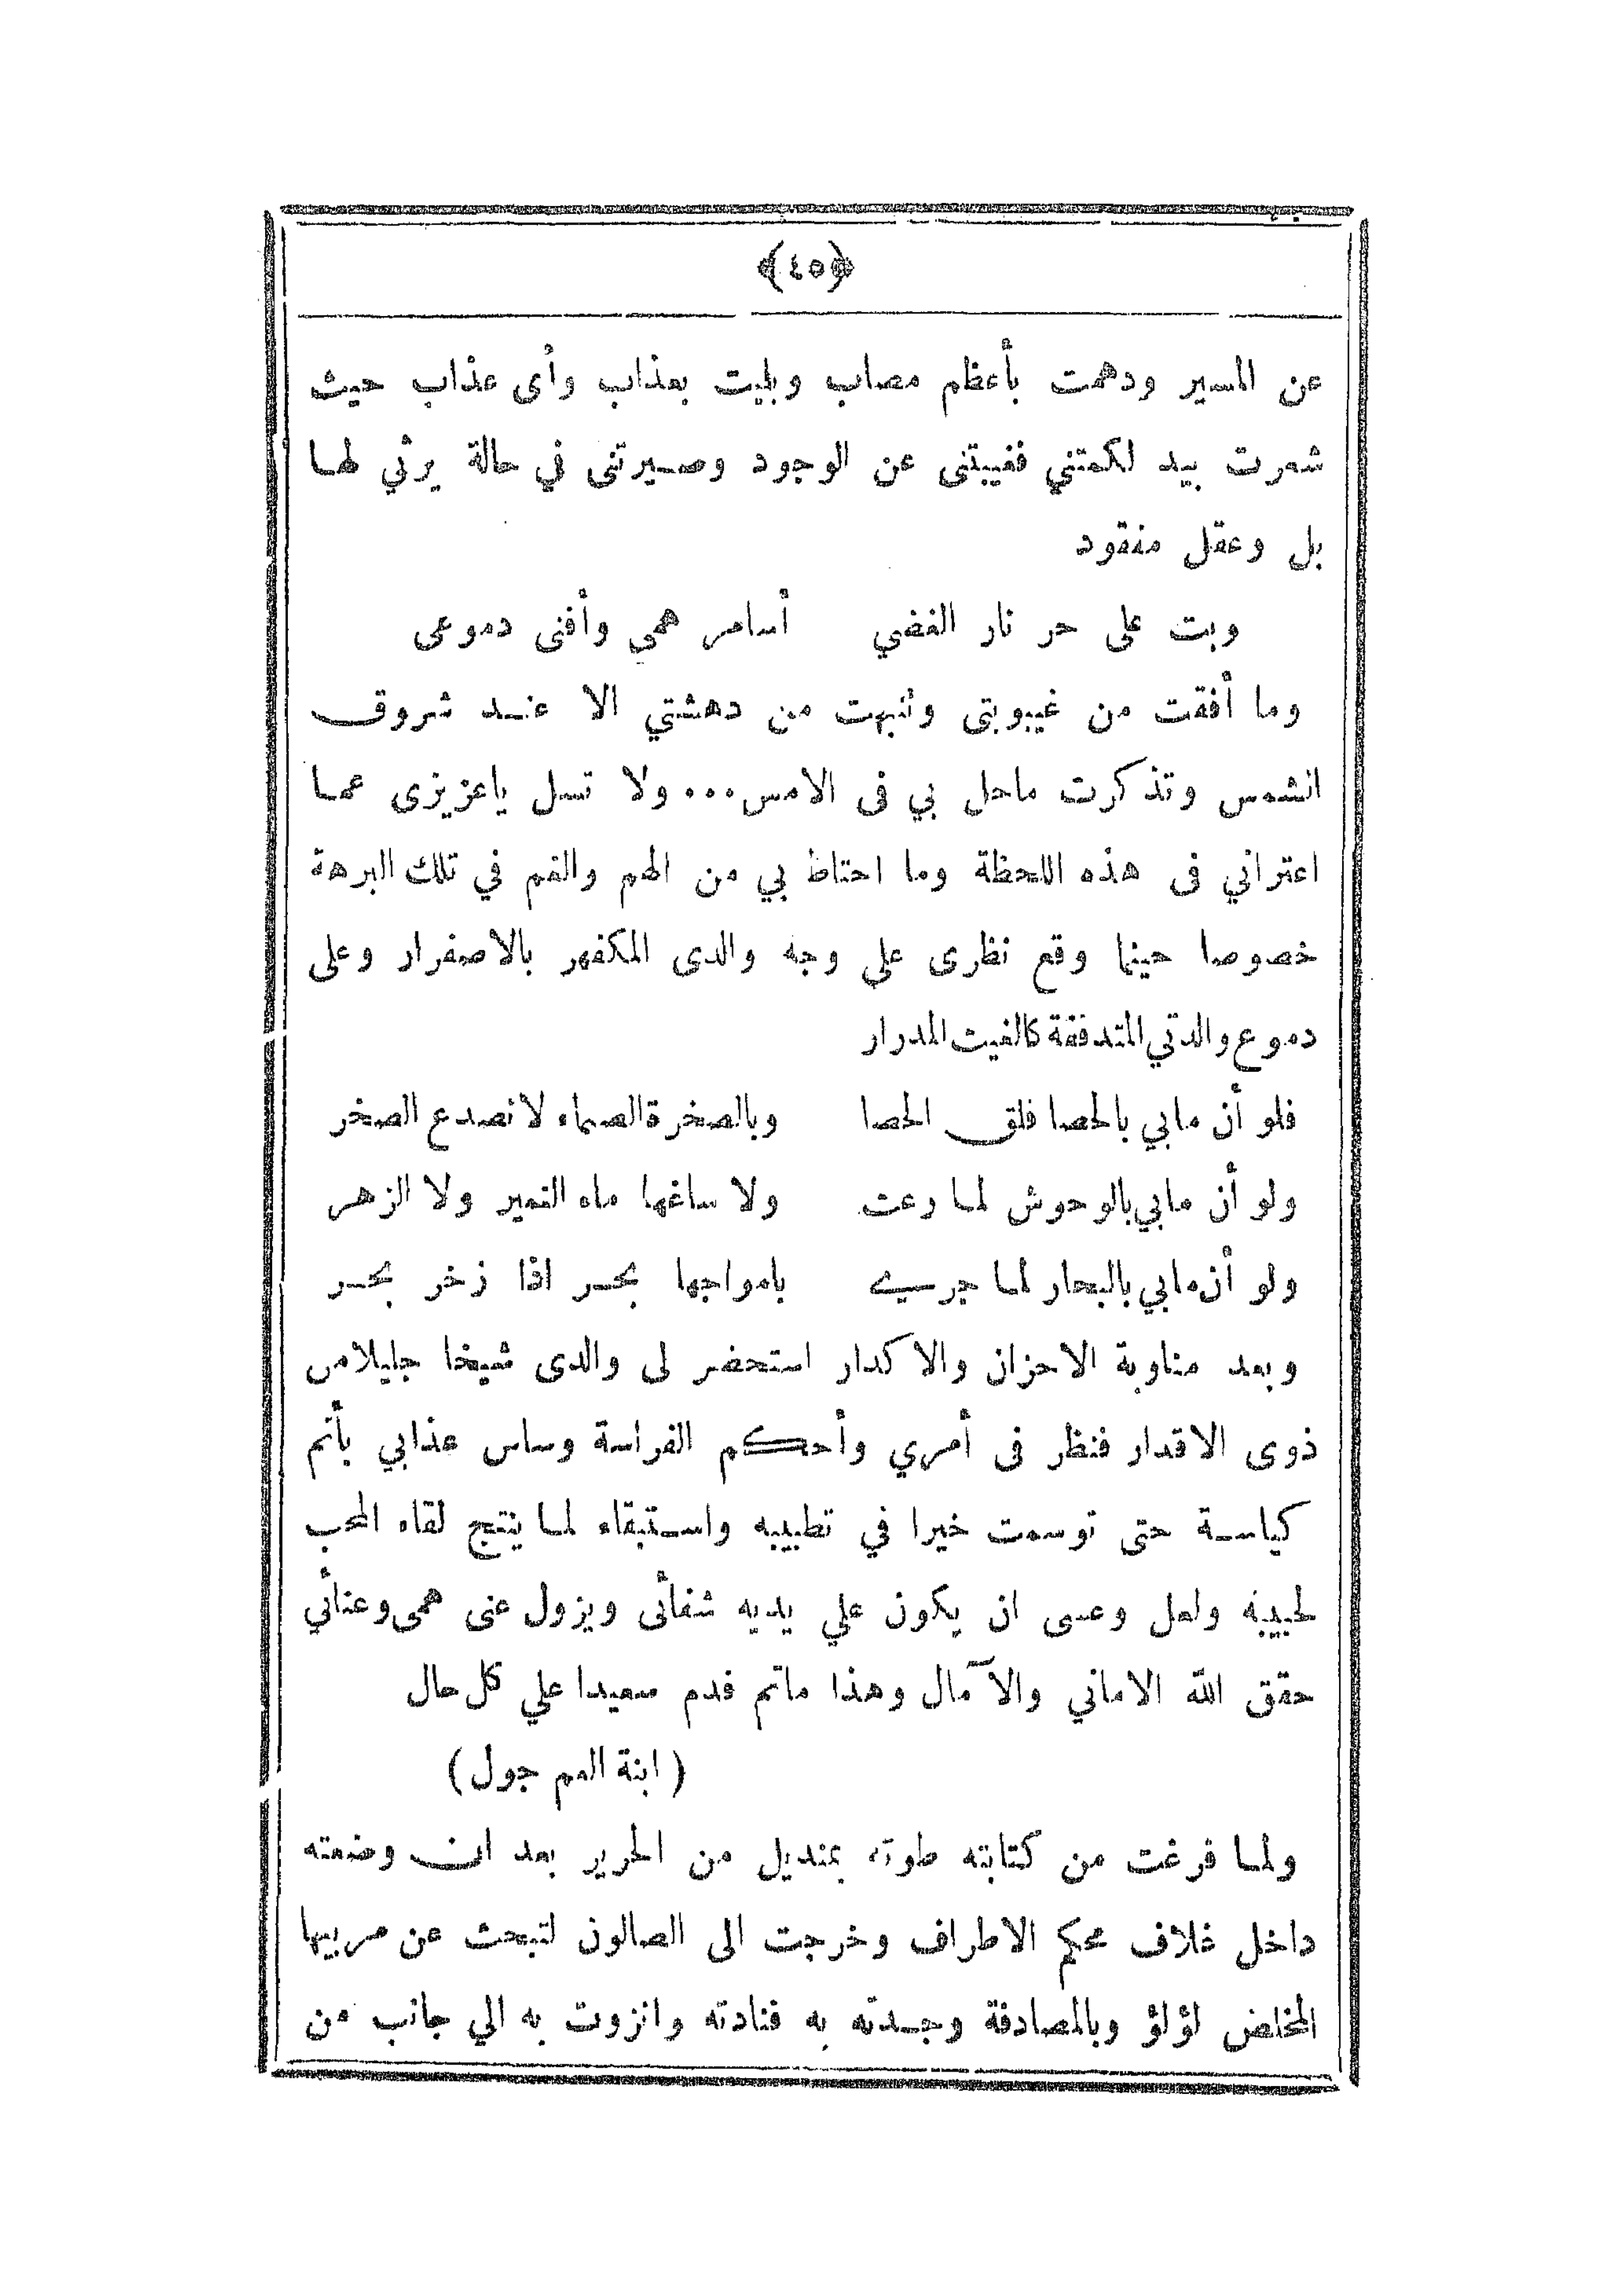 ﴿٤٥﴾
عن المسير ودهمت بأعظم مصاب وبليت بعذاب وأى عذاب حيث
شعرت بيد لكمتني فغيبتنى عن الوجود وصيرتنى في حالة يرثي لها
بل وعقل مفقود
وبت على حر نار الغضي أسامر همي وأفنى دموعى
وما أفقت من غيبوبتى وتنبهت من دهشتي الا عند شروق
الشمس وتذكرت ماحل بي فى الامس... ولا تسل ياعزيزى عما
اعتراني فى هذه اللحظة وما احتاط بي من الهم والغم في تلك البرهة
خصوصا حينما وقع نظرى علي وجه والدى المكفهر بالاصفرار وعلى
دموع والدتي المتدفقة كالغيث المدرار
فلو أن مابي بالحصا فلق الحصا وبالصخرة الصماء لانصدع الصخر
ولو أن مابي بالوحوش لما رعت ولا ساغها ماء النمير ولا الزهر
ولو أن مابي بالبحار لما جرى بامواجها بحر اذا زخر بحر
وبعد مناوبة الاحزان والاكدار استحضر لى والدى شيخا جليلا من
ذوى الاقدار فنظر فى أمري وأحكم الفراسة وساس عذابي بأتم
كياسة حتى توسمت خيرا في تطبيبه واستبقاء لما ينتج لقاء المحب
لحبيبه ولعل وعسى ان يكون علي يديه شفائى ويزول عنى همى وعنائي
حقق الله الاماني والآمال وهذا ماتم فدم سعيدا علي كل حال
(ابنة العم جول)
ولما فرغت من كتابته طوته بمنديل من الحرير بعد ان وضعته
داخل غلاف محكم الاطراف وخرجت الى الصالون لتبحث عن مربيها
المخلص لؤلؤ وبالمصادفة وجدته به فنادته وانزوت به الي جانب من